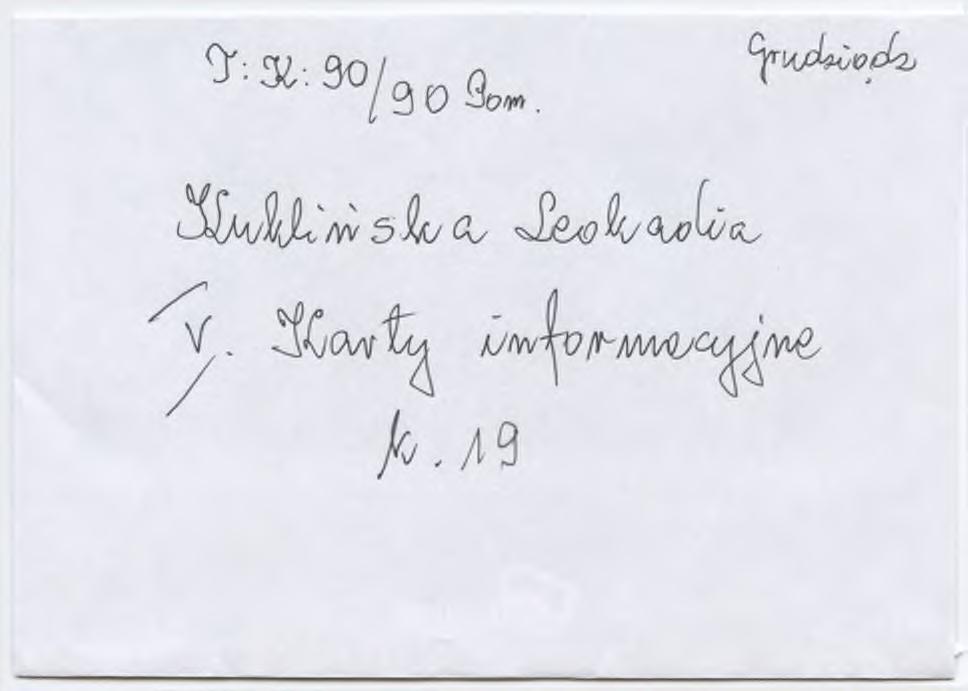 T: K: 90/90 Pom.
Grudziądz
Kuklińska Leokadia
V. Karty informacyjne
k. 19